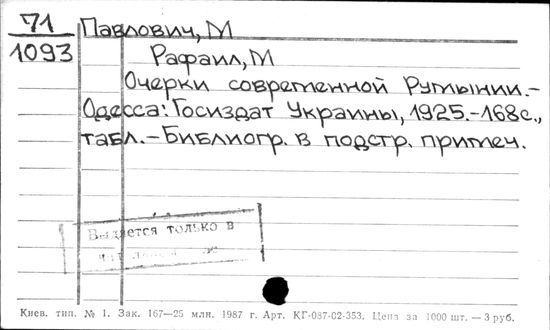 71
1093
Павлович, М
Рафаил, М
Очерки современной Румынии.-
Одесса: Госиздат Украины, 1925.-168с.,
табл.-Библиогр. в подстр. примеч.
Выдается только в
Киев. тип. № 1. Зак. 167—25 млн. 1987 г. Арт. КГ-087-02-353. Цена за 1000 шт. — 3 руб.